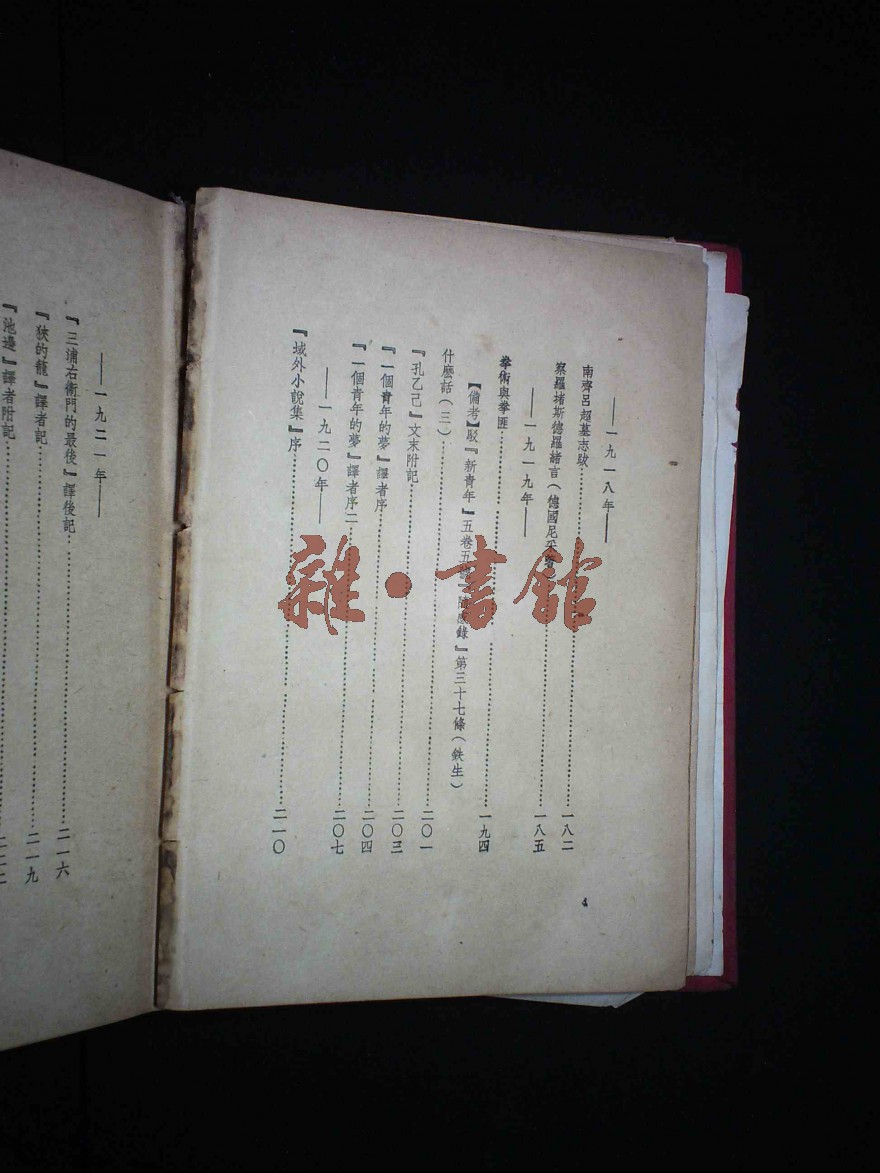 ——一九一八年——
南齊呂超墓志跋……一八二
察羅堵斯德羅諸言（德國尼采著）……一八五
——一九一九年——
拳術與拳匪……一九四
【備考】駁『新青年』五卷五號『隨感錄』第三十七條（鉄生）
什麼話（三）……二〇一
『孔乙己』文末附記……二〇三
『一個青年的夢』譯者序……二〇四
『一個青年的夢』譯者序二……二〇七
——一九二〇年——
『域外小說集』序……二一〇
4
——一九二一年——
『三浦右衛門的最後』譯後記……二一六
『狹的籠』譯者記……二一九
『池邊』譯者附記……
雜·書館